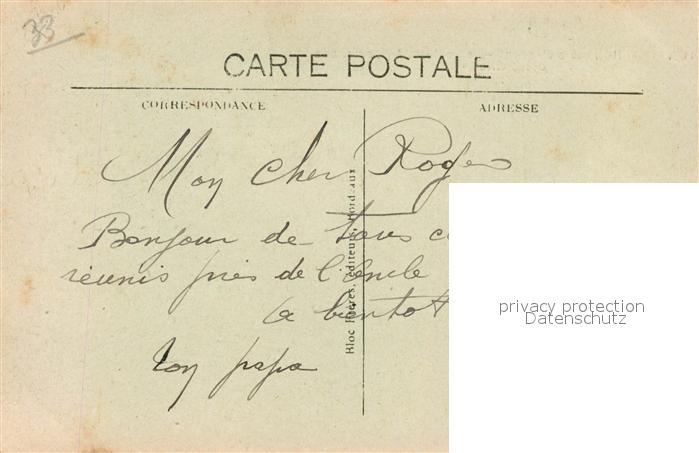 33
CARTE POSTALE
CORRESPONDANCE
ADRESSE
Mon cher Roger
Bonjour de tous
réunis près de l'oncle
a bientot
Ton papa
Bloc Frères, éditeurs, Bordeaux
privacy protection
Datenschutz